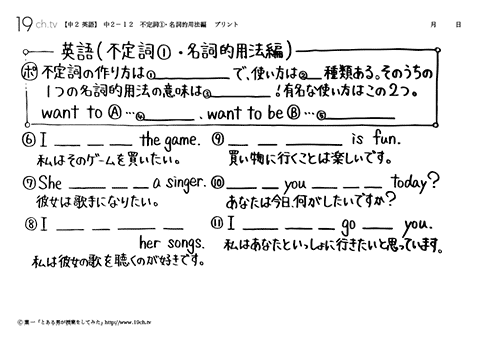 19ch.tv 【中2 英語】 中2-12 不定詞①・名詞的用法編 プリント 月 日
英語(不定詞①・名詞的用法編)
ポ 不定詞の作り方は①____で、使い方は②__種類ある。そのうちの
1つの名詞的用法の意味は③____!有名な使い方はこの2つ。
want to Ⓐ…④____、want to be Ⓑ…⑤____
⑥ I __ __ __ the game.
私はそのゲームを買いたい。
⑦ She __ __ __ a singer.
彼女は歌手になりたい。
⑧ I __ __ __ __
her songs.
私は彼女の歌を聴くのが好きです。
⑨ __ __ __ is fun.
買い物に行くことは楽しいです。
⑩ __ __ you __ __ __ today?
あなたは今日、何がしたいですか?
⑪ I __ __ __ go __ you.
私はあなたといっしょに行きたいと思っています。
Ⓒ 葉一「とある男が授業をしてみた」http://www.19ch.tv